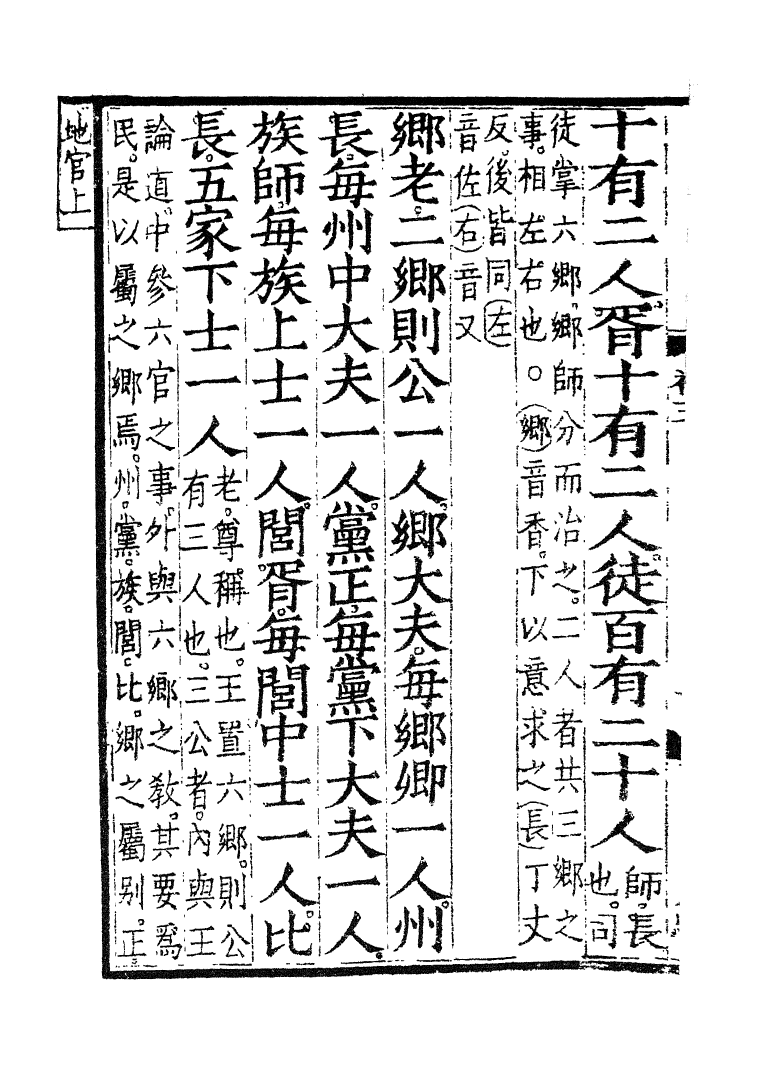 十有二人。胥十有二人。徒百有二十人師。長也。司
徒掌六鄉。鄉師分而治之。二人者共三鄉之
事。相左右也。○鄉音香。下以意求之長丁丈
反。後皆同左
音佐右音又
鄉老。二鄉則公一人。鄉大夫。每鄉卿一人。州
長。每州中大夫一人。黨正。每黨下大夫一人。
族師。每族上士一人。閭胥。每閭中士一人。比
長。五家下士一人老。尊稱也。王置六鄉。則公有三人也。三公者。內與王
論道。中參六官之事。外與六鄉之教。其要為
民。是以屬之鄉焉。州。黨。族。閭。比。鄉之屬别。正
地官上